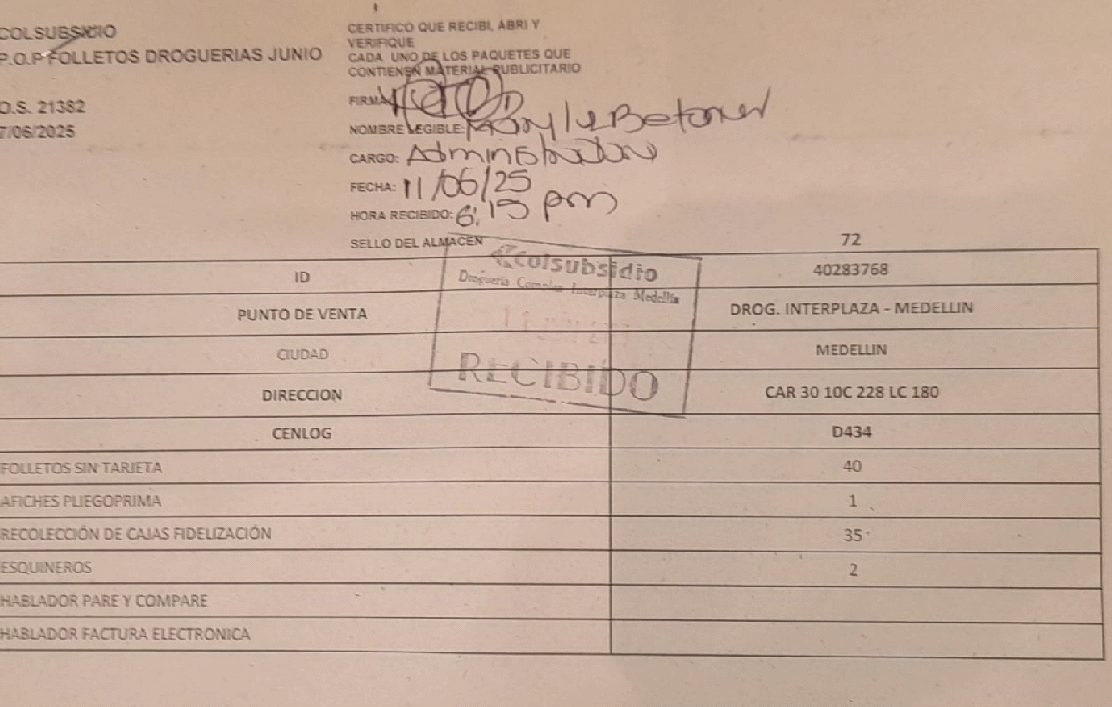 COLSUBSIDIO
P.O.P FOLLETOS DROGUERIAS JUNIO
O.S. 21382
7/06/2025
CERTIFICO QUE RECIBI, ABRI Y
VERIFIQUE
CADA UNO DE LOS PAQUETES QUE
CONTIENEN MATERIAL PUBLICITARIO
FIRMA
NOMBRE LEGIBLE: Betaner
CARGO: Administradora
FECHA: 11/06/25
HORA RECIBIDO: 6:15 pm
SELLO DEL ALMACEN
72
colsubsidio
Droguería Complex Interplaza Medellín
RECIBIDO
ID 40283768
PUNTO DE VENTA DROG. INTERPLAZA - MEDELLIN
CIUDAD MEDELLIN
DIRECCION CAR 30 10C 228 LC 180
CENLOG D434
FOLLETOS SIN TARJETA 40
AFICHES PLIEGOPRIMA 1
RECOLECCIÓN DE CAJAS FIDELIZACIÓN 35
ESQUINEROS 2
HABLADOR PARE Y COMPARE
HABLADOR FACTURA ELECTRONICA